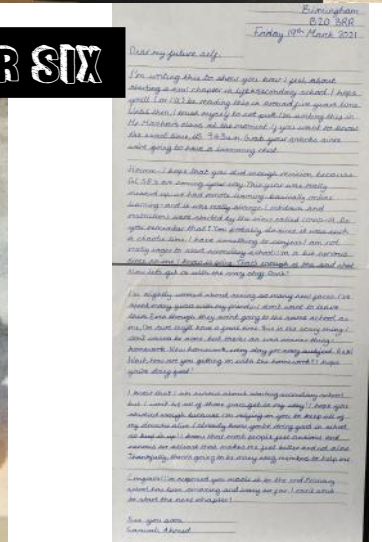 R SIX
Birmingham
B20 3RR
Friday 19th March 2021
Dear my future self,
I'm writing this to show you how I feel about
starting a new chapter in life: secondary school. I hope
you'll (or I'll) be reading this in around five years time.
Until then, I trust myself to not peek. I'm writing this in
class at the moment. If you want to know
the exact time, it's 9:43 a.m. Grab your snacks since
we're going to have a long chat.
I hope that you did enough revision because
GCSE's are coming your way. This year was really
messed up: we had remote learning - basically online
learning - and it was really strange. Lockdown and
restrictions were started by the virus called COVID-19. Do
you remember that? I'm probably sure it was such
a chaotic time. I have something to confess: I am not
really eager to start secondary school. I'm a bit nervous
Now let's get on with the
I'm slightly worried about seeing so many new faces. I've
spent many years with my friends; I don't want to leave
them. Even though they aren't going to the same school as
me, I'm sure they'll have a great time. This is the scary thing: I
homework. New homework every day for every subject.
Wait, how are you getting on with the homework? I hope
you're doing good!
I know that I am nervous about starting secondary school
but I won't let all of those get in my way! I hope you
studied enough because I'm relying on you to keep all of
my dreams alive. I already know you're doing good in school
so keep it up! I know that most people feel anxious and
nervous so that makes me feel better and not alone.
Thankfully, there's going to be many members to help me.
Congrats! I'm surprised you made it to the end! Primary
school has been amazing and so far. I can't wait
to start the next chapter!
See you soon,
Ahmed